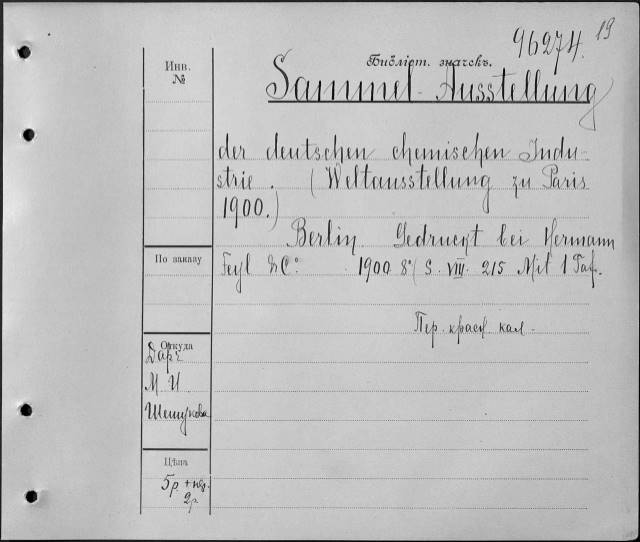 96274.
19
Библіот. значекъ.
Инв.
№
Sammel-Ausstellung
der deutschen chemischen Indu-
strie. (Weltausstellung zu Paris
1900.)
Berlin Gedruckt bei Hermann
Feyl & Cº 1900 8º (S. VIII. 215 Mit 1 Taf.
По заказу
Пер. красн кал.
Откуда
Даръ
М И
Цѣна
5р.
2р